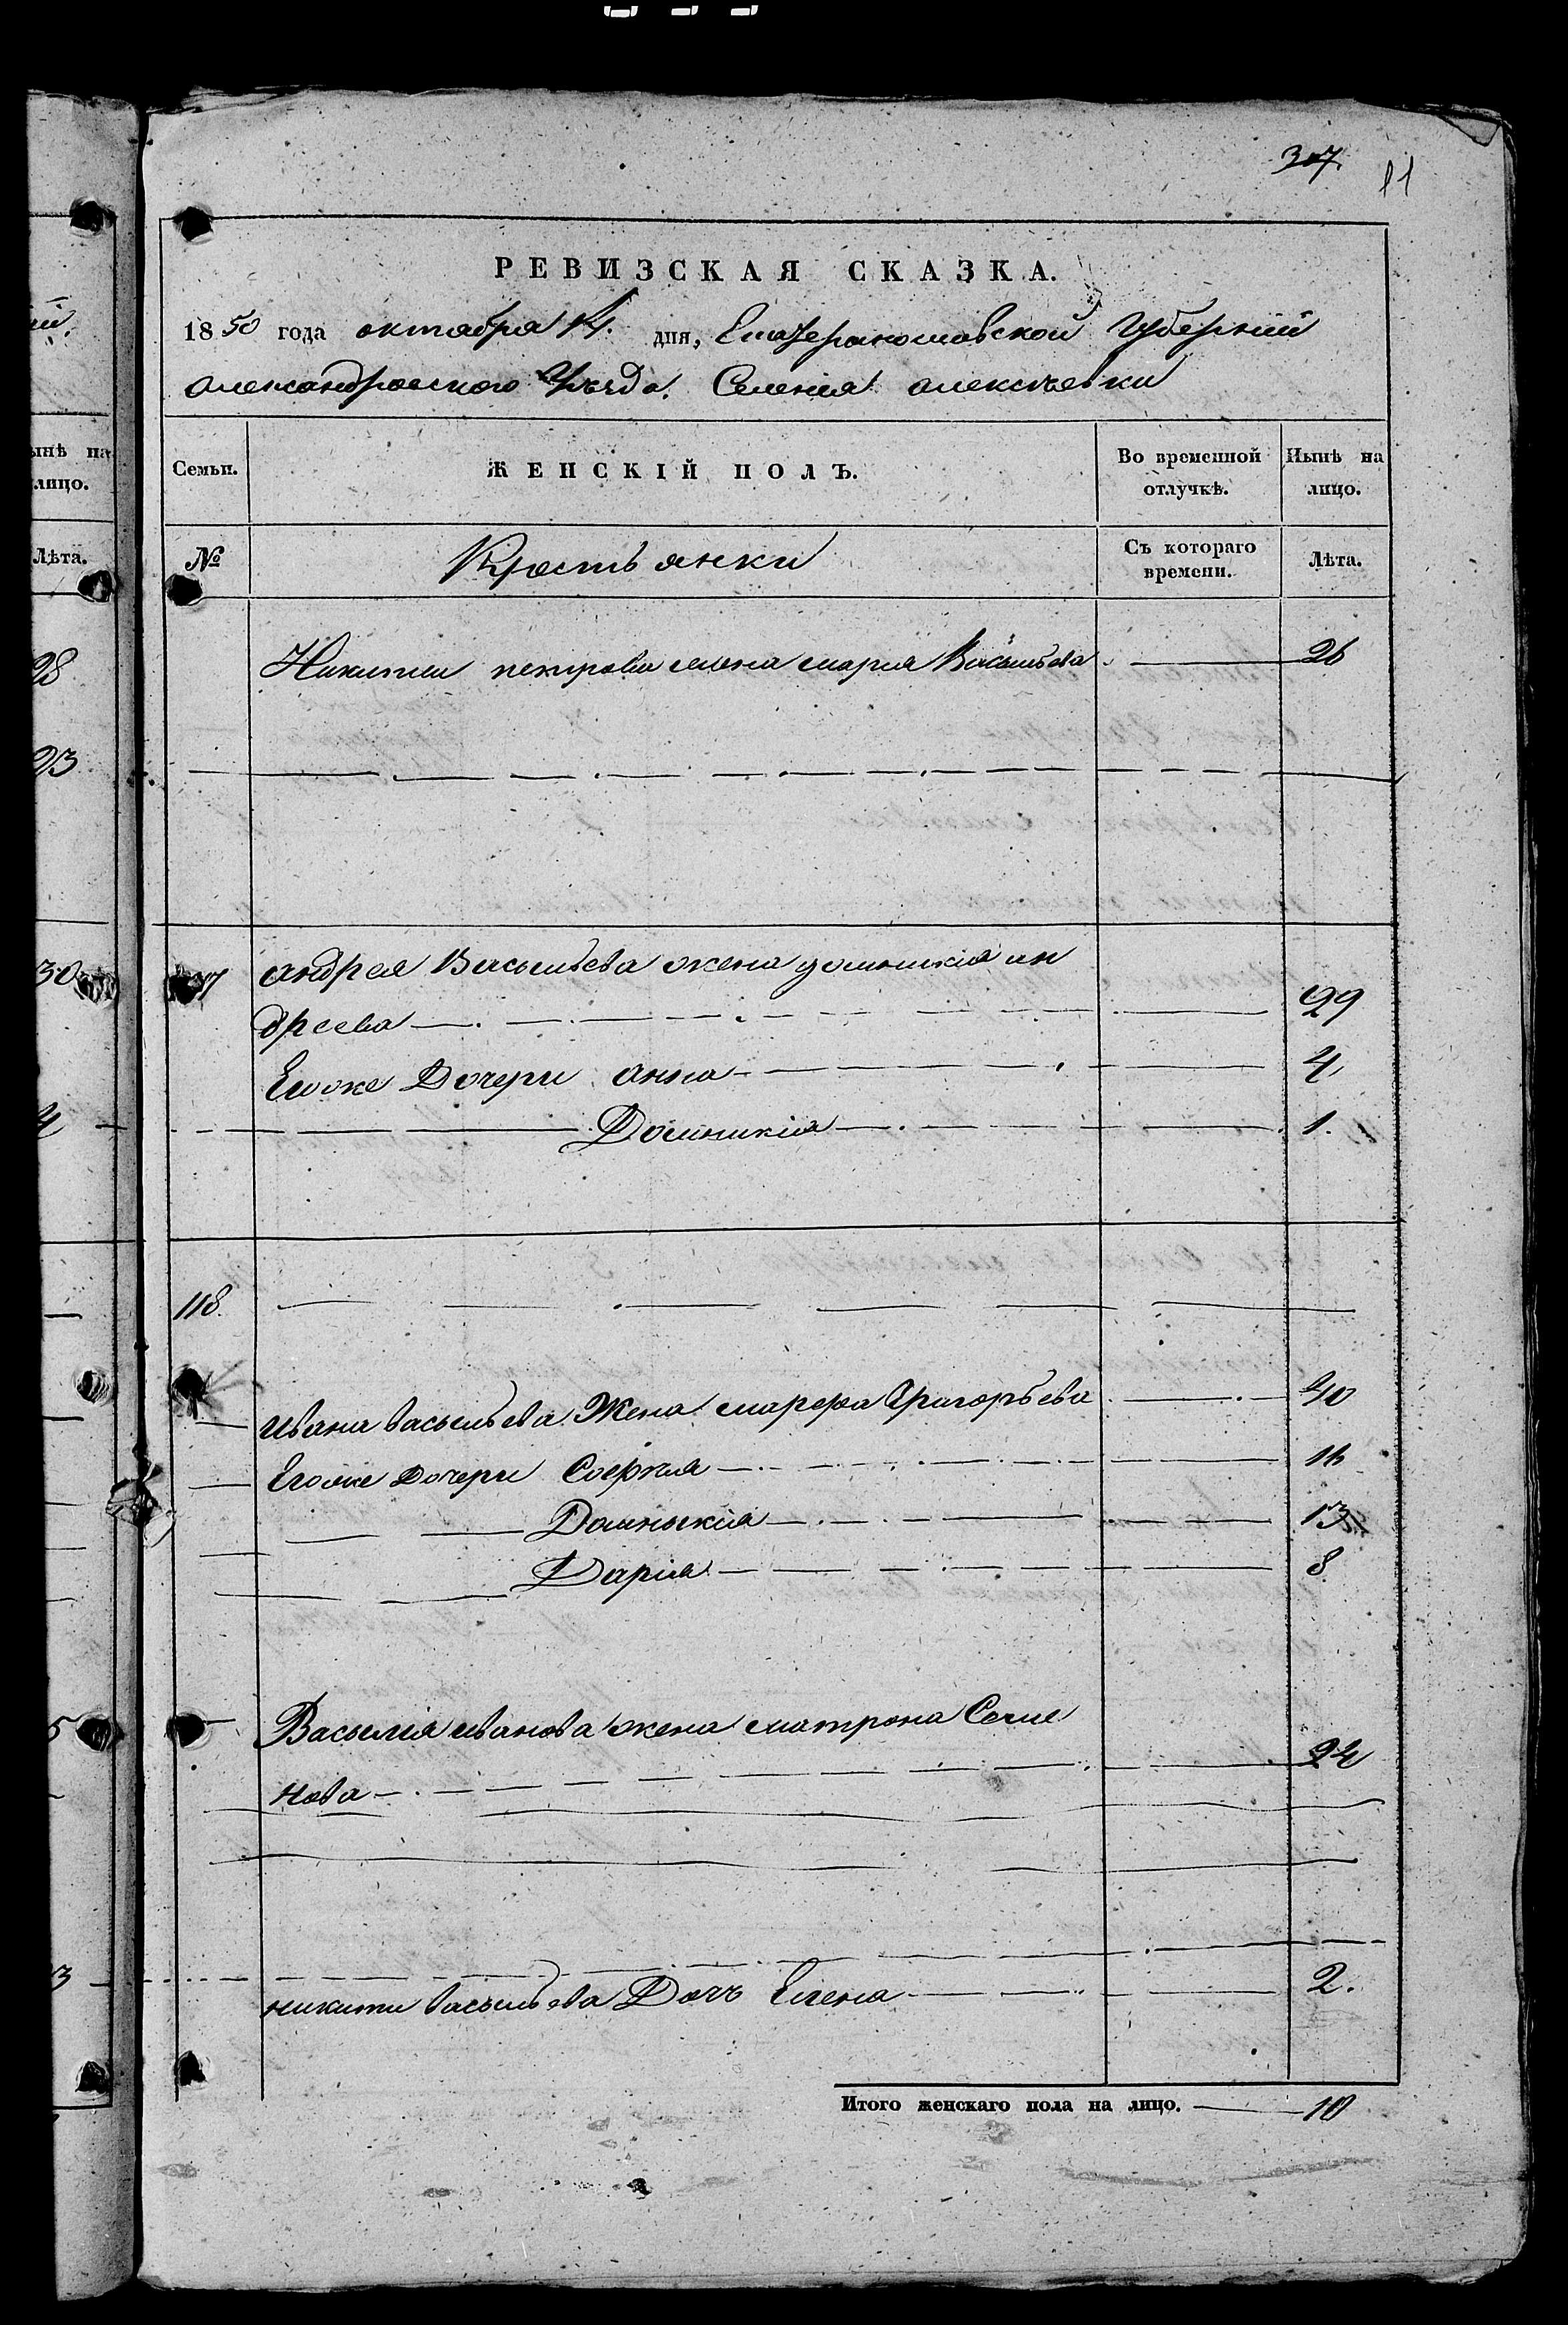 307.
11
ій.
РЕВИЗСКАЯ СКАЗКА.
1850 года октября 14. дня, Екатеринославской Губерніи
Александровского Уѣзда. Селенія Алексѣевки
ынѣ на лицо.
Лѣта.
28
23
30
4
5
3
Семьи. ЖЕНСКІЙ ПОЛЪ. Во временной отлучкѣ. Нынѣ на лицо.
№ Крестьянки Съ котораго времени. Лѣта.
Никиты петрова жена мария Васильева 26
андрея Васыльева жена домникія ан
дреева 29
Егоже Дочери анна 4
Домникія 1.
118.
ивана васыльева Жена марфа Григорьева 40
Егоже Дочери София 16
Домныкія 13
Дарія 8
Васылія иванова жена матрона Семе
нова 24
никиты васыльева Дочъ Елена 2.
Итого женскаго пола на лицо. 10